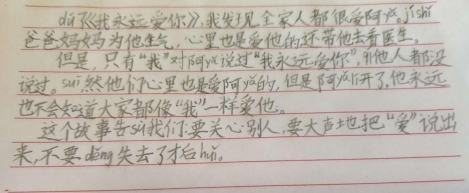 dú了《我永远爱你》，我发见全家人都很爱阿yá。jíshǐ
爸爸妈妈为他生气，心里也是爱他的还带他去看医生。
但是，只有“我”对阿yá说过“我永远爱你”，其他人都没
说过。suī然他们心里也是爱阿yá的，但是阿yá离开了，他永远
也不会知道大家都像“我”一样爱他。
这个故事告sù我们：要关心别人，要大声地把“爱”说出
来，不要děng失去了才后huǐ。